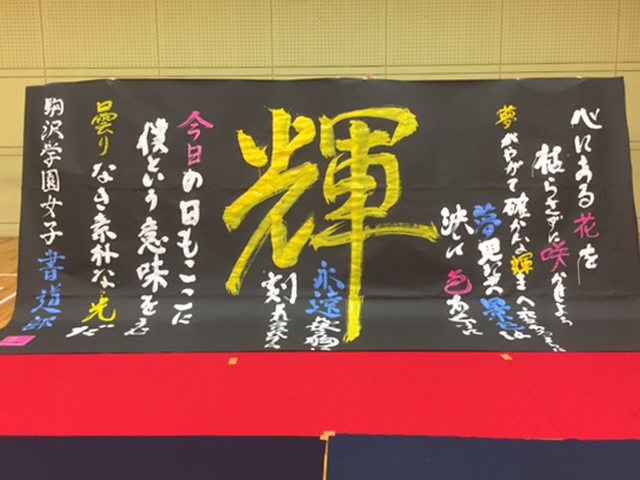 心にある花を
枯らさずに咲かせよう
夢がやがて確かな輝きへ
夢見た景色は
淡い色
輝
永遠
刻
今日の日もここに
僕という意味を
曇りなき素朴な光だ
駒沢学園女子書道部